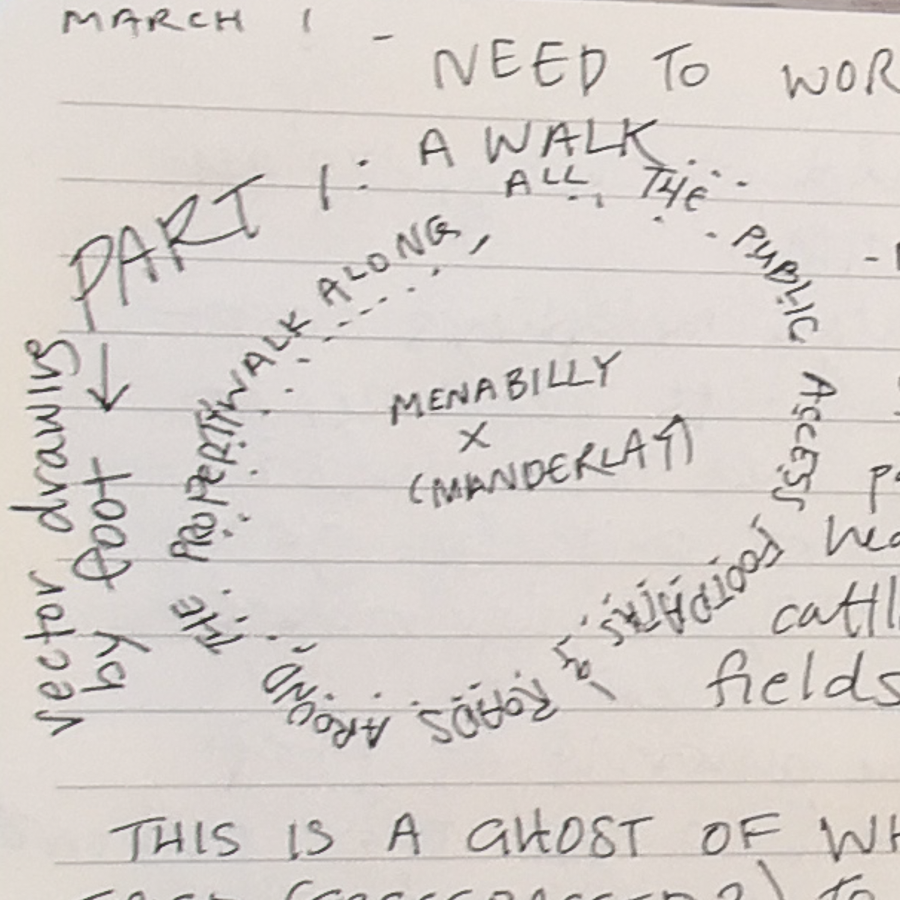 MARCH 1 -
NEED TO WOR
PART 1: A WALK
WALK ALONG, ALL THE PUBLIC ACCESS FOOTPATHS & ROADS AROUND THE PROPERTY
MENABILLY
X
(MANDERLAY)
vector drawing
by foot
cattl
fields
THIS IS A GHOST OF WH